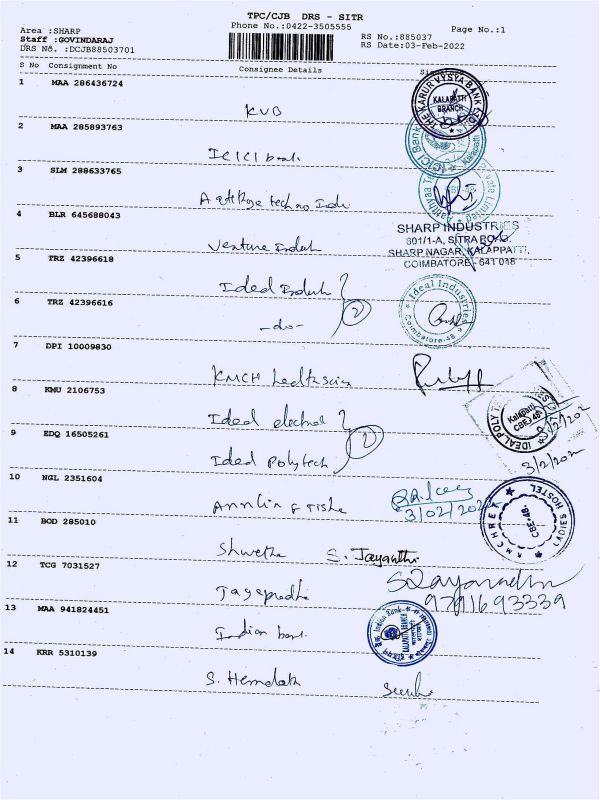 TPC/CJB DRS - SITR
Phone No.:0422-3505555
Page No.:1
Area :SHARP
Staff :GOVINDARAJ
DRS No. :DCJB88503701
RS No.:885037
RS Date:03-Feb-2022
S No Consignment No Consignee Details
1 MAA 286436724
KVB
THE KARUR VYSYA BANK
KALAPATTI
BRANCH
2 MAA 285893763
ICICI bank
ICICI Bank
Kalapatti
3 SLM 288633765
4 BLR 645688043
SHARP INDUSTRIES
601/1-A, SITRA ROAD,
SHARP NAGAR, KALAPPATTI,
COIMBATORE - 641 048
5 TRZ 42396618
6 TRZ 42396616
-do-
2
Ideal Industries
Coimbatore-48
7 DPI 10009830
KMCH
8 KMU 2106753
Ideal
9 EDQ 16505261
Ideal Polytech
2
IDEAL POLYTECH
Kalapatti
CBE-48
3/2/202
10 NGL 2351604
3/02/202
KMCHRET
LADIES HOSTEL
CBE-48
11 BOD 285010
Shwetha S. Jayanthi
12 TCG 7031527
Jayapradha
9791693339
13 MAA 941824451
Indian bank
Indian Bank
KALAPATTI BRANCH
14 KRR 5310139
S. Hemalatha